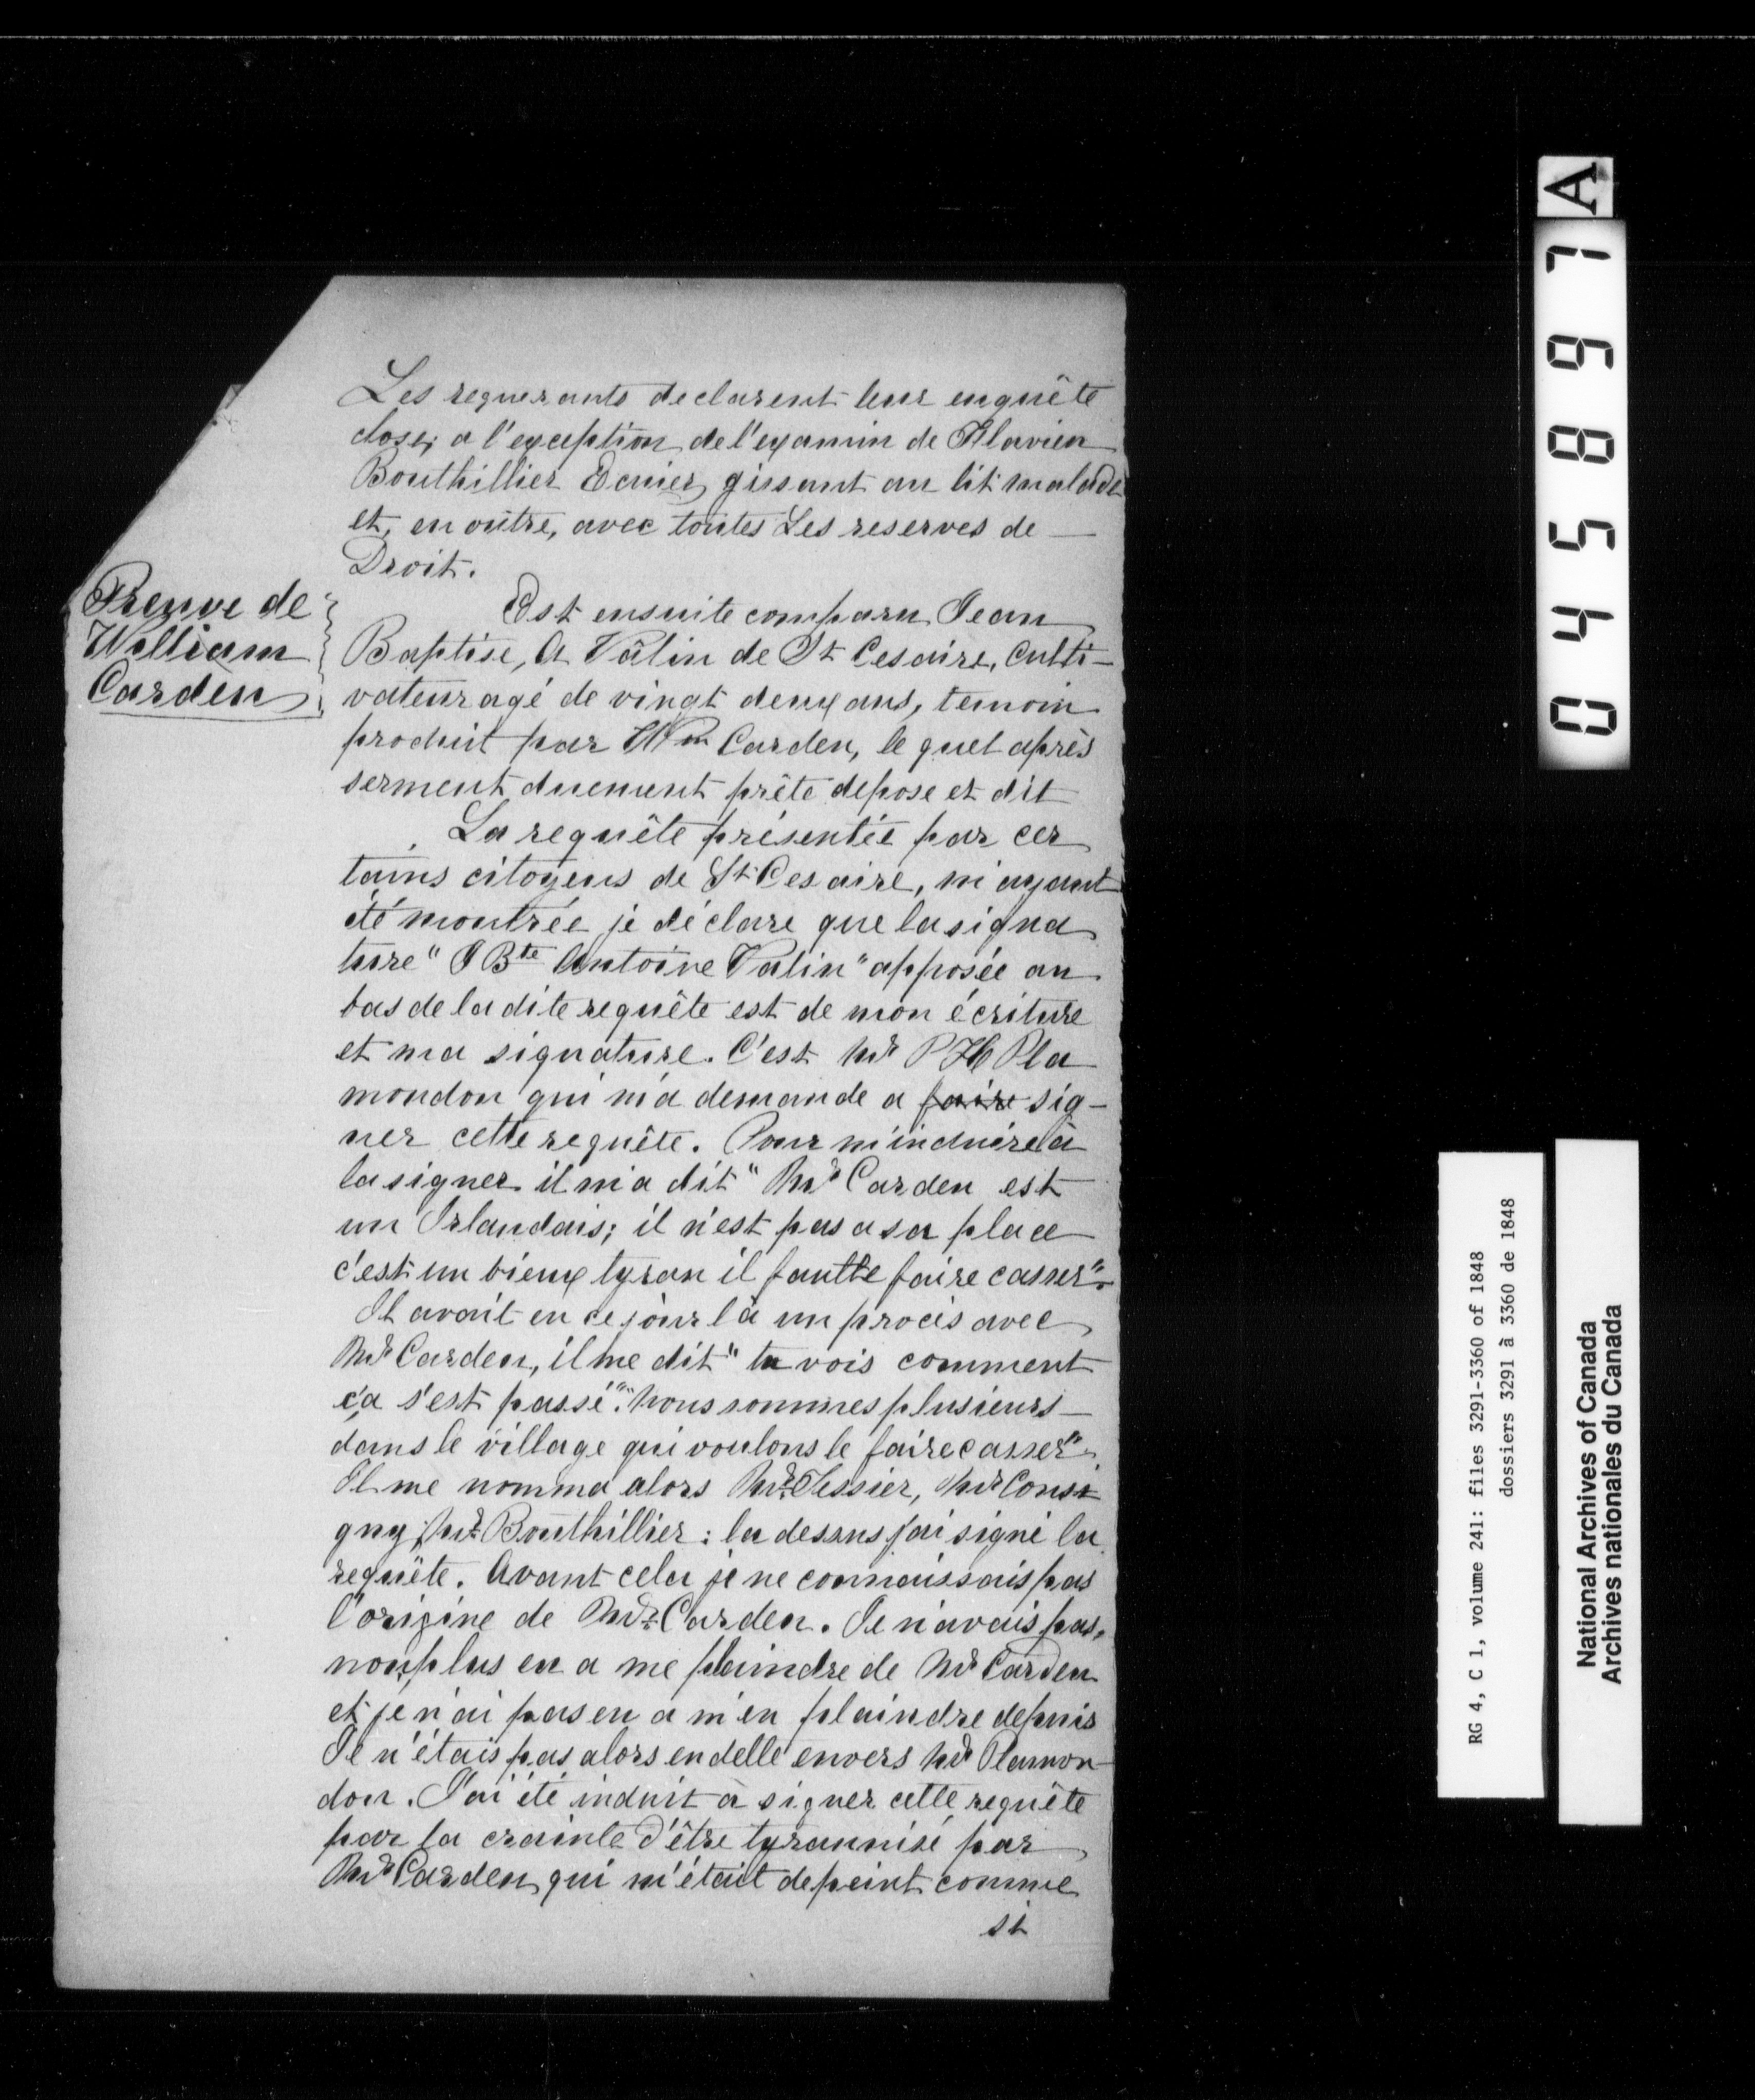 Les requerants declarent leur enquête
close, a l'exception de l'examin de Flavien
Bouthillier Ecuier, gissant au lit malade
et, en oûtre, avec toutes Les reserves de —
Droit.
Preuve de
William
Carden
Est ensuite comparu Jean
Baptise, A Vâlin de St Cesaire, Culti-
vateur agé de vingt deux ans, temoin
produit par Wm Carden, le quel après
serment duement prêté depose et dit
La requête présentée par cer
tains citoyens de St Cesaire, m'ayant
été montrée je déclare que la signa
ture "J Bte Antoine Valin" apposée au
bas de la dite requête est de mon écriture
et ma signature. C'est Mr P H Pla
mondon qui m'a demande a faire sig-
ner cette requête. Pour m'induire à
la signer il m'a dit "Mr Carden est
un Irlandais; il n'est pas a sa place
c'est un vieux tyran il faut le faire casser".
Il avait eu ce jour là un procès avec
Mr Carden, il me dit "tu vois comment
ça s'est passé". "nous sommes plusieurs —
dans le village qui voulons le faire casser".
Il me nomma alors Mr Tessier, Mr Consi
gny, Mr Bouthillier : la dessus j'ai signé la
requête. Avant cela je ne connaissais pas
l'origine de Mr Carden. Je n'avais pas,
non plus eu a me plaindre de Mr Carden
et je n'ai pas eu a m'en plaindre depuis
Je n'étais pas alors endetté envers Mr Plamon-
don. J'ai été induit à signer cette requête
par la crainte d'être tyrannisé par
Mr Carden qui m'était depeint comme
si
A
045897
RG 4, C 1, volume 241: files 3291-3360 of 1848
dossiers 3291 à 3360 de 1848
National Archives of Canada
Archives nationales du Canada